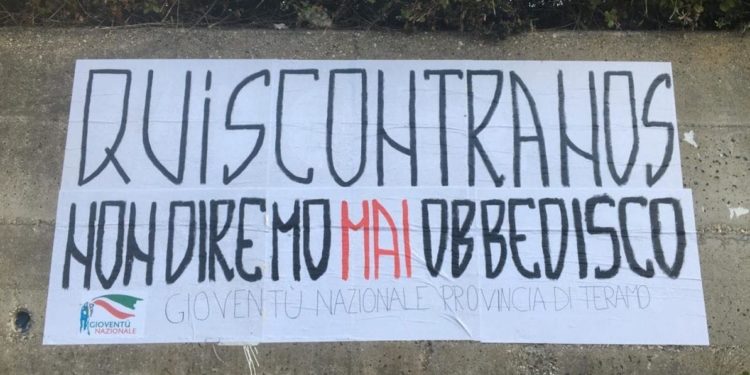 QUIS CONTRA NOS
NON DIREMO MAI OBBEDISCO
GIOVENTÙ NAZIONALE PROVINCIA DI TERAMO
GIOVENTÙ
NAZIONALE